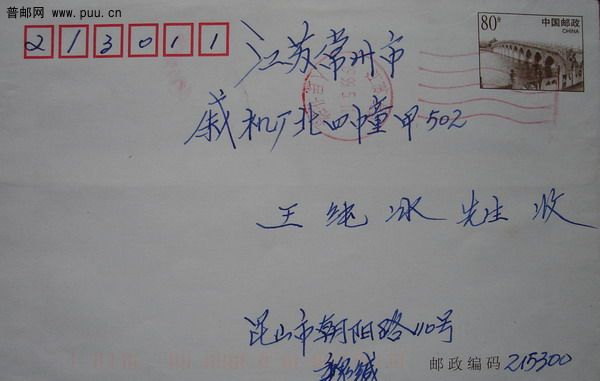 普邮网 www.puu.cn
213011
80分 中国邮政
CHINA
江苏常州市
戚机厂北四幢甲502
王纯冰 先生 收
昆山市朝阳路110号
缄
邮政编码 215300